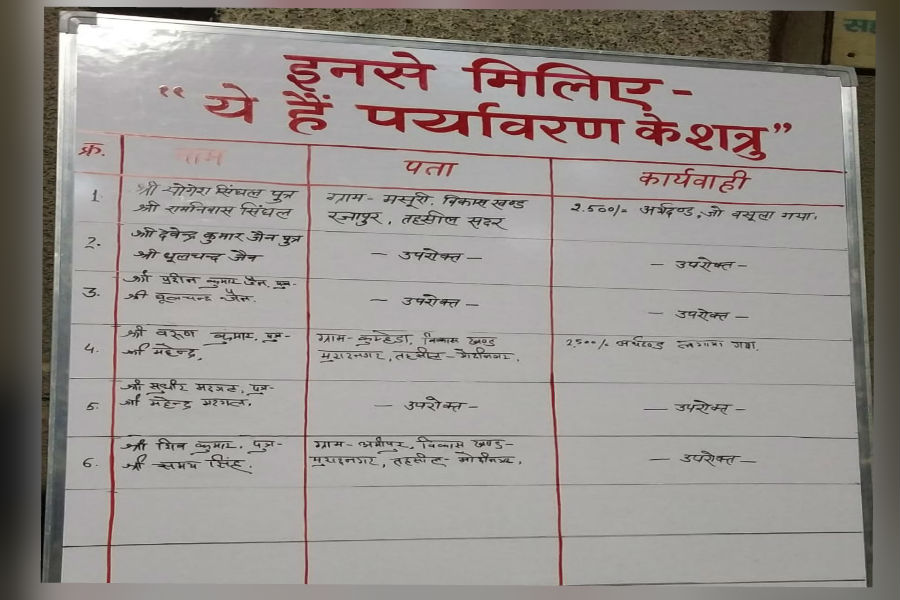 सह
इनसे मिलिए -
“ ये हैं पर्यावरण के शत्रु ”
क्र. नाम पता कार्यवाही
1. श्री योगेश सिंघल पुत्र ग्राम- मसूरी, विकास खण्ड
श्री रामनिवास सिंघल रजापुर, तहसील सदर 2.500/= अर्थदण्ड, जो वसूला गया.
2. श्री देवेन्द्र कुमार जैन पुत्र
श्री फूलचन्द जैन — उपरोक्त — — उपरोक्त —
3. श्री कुमार जैन, पुत्र-
श्री जैन. — उपरोक्त — — उपरोक्त —
4. श्री वरूण कुमार, पुत्र- ग्राम- कुम्हेडा, विकास खण्ड 2500/- अर्थदण्ड लगाया गया.
श्री महेन्द्र, मुरादनगर, तहसील- मोदीनगर.
5. श्री सुधीर पुत्र-
श्री महेन्द्र — उपरोक्त — — उपरोक्त —
6. श्री शिव कुमार, पुत्र- ग्राम- विकास खण्ड-
श्री समय सिंह. मुरादनगर, तहसील- मोदीनगर, — उपरोक्त —